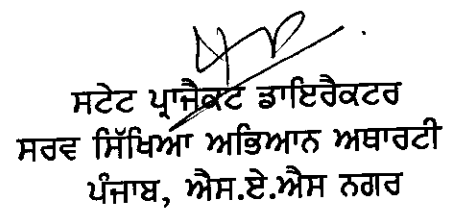 ਸਟੇਟ ਪ੍ਰਾਜੈਕਟ ਡਾਇਰੈਕਟਰ
ਸਰਵ ਸਿੱਖਿਆ ਅਭਿਆਨ ਅਥਾਰਟੀ
ਪੰਜਾਬ, ਐਸ.ਏ.ਐਸ ਨਗਰ